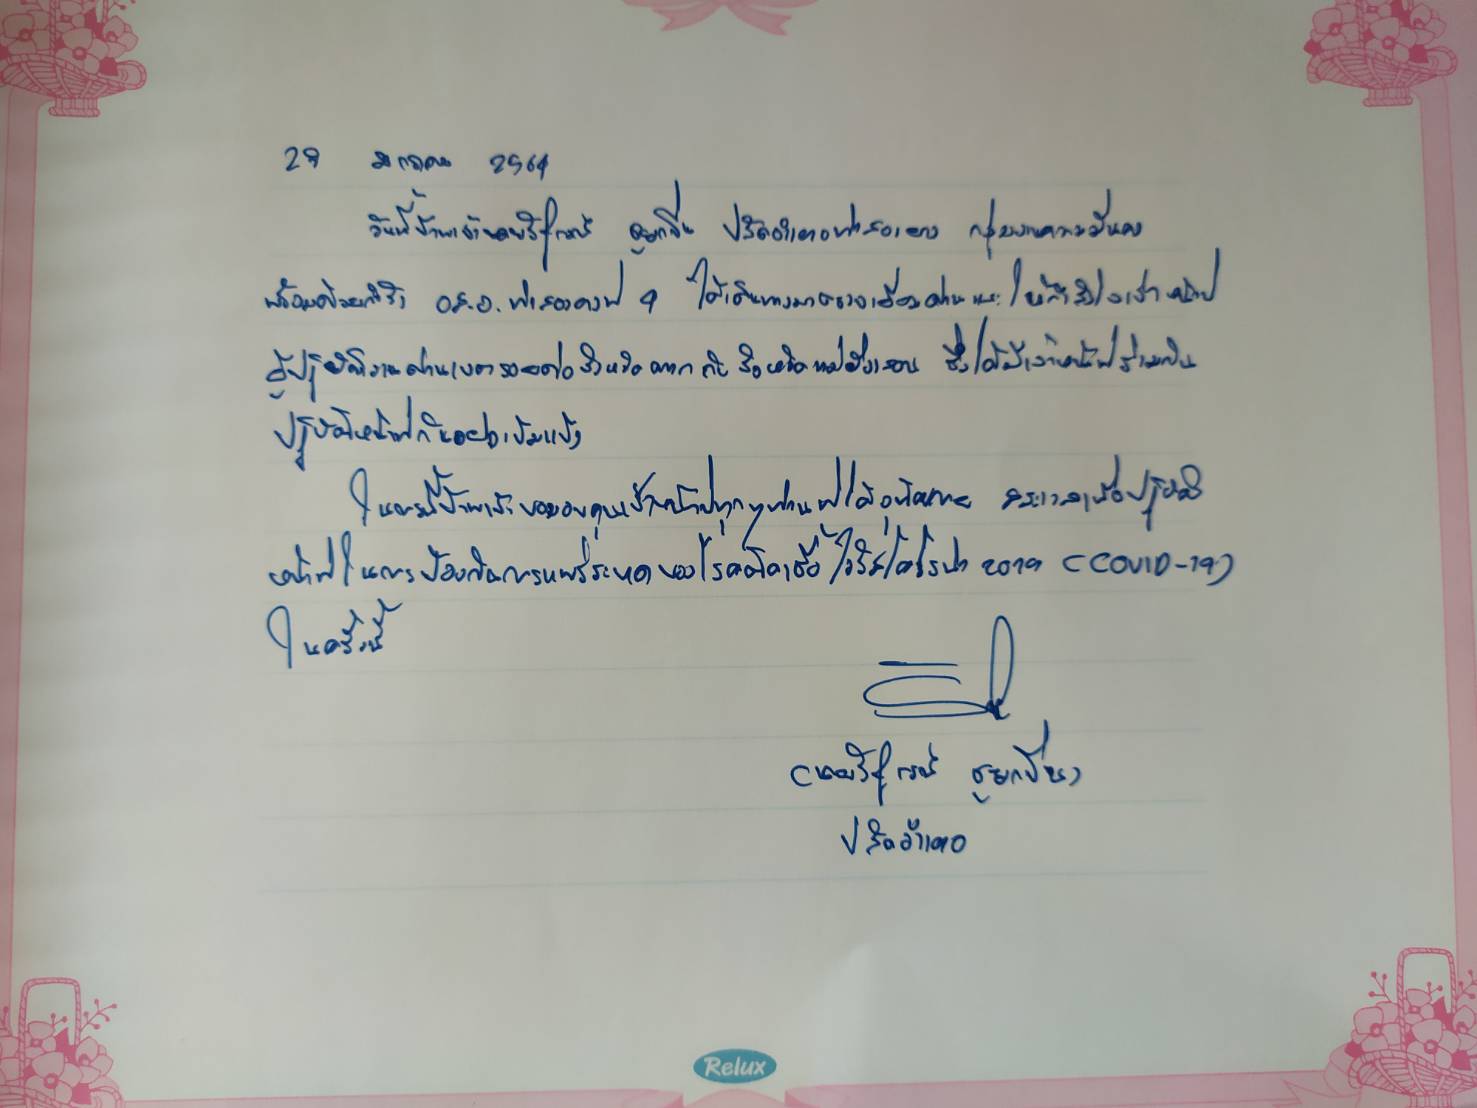 29 มกราคม 2564
วันนี้ข้าพเจ้านายวิฑูรย์ ปลัดอำเภอท่าสองยาง กลุ่มงานความมั่นคง
พร้อมด้วยกำลัง อส.อ.ท่าสองยางที่ 9 ได้เดินทางมาตรวจเยี่ยมด่านและให้กำลังใจเจ้าหน้าที่
ผู้ปฏิบัติงานด่านเขตรอยต่อจังหวัดตาก กับ จังหวัดแม่ฮ่องสอน ซึ่งได้มีเจ้าหน้าที่ร่วมกัน
ปฏิบัติหน้าที่กันอย่างเข้มแข็ง
ในการนี้ข้าพเจ้า ขอขอบคุณเจ้าหน้าที่ทุกๆท่านที่ได้อุทิศกาย สละเวลาเพื่อปฏิบัติ
หน้าที่ในการป้องกันการแพร่ระบาดของโรคติดเชื้อไวรัสโคโรน่า 2019 (COVID-19)
ในครั้งนี้
ปลัดอำเภอ
Relux